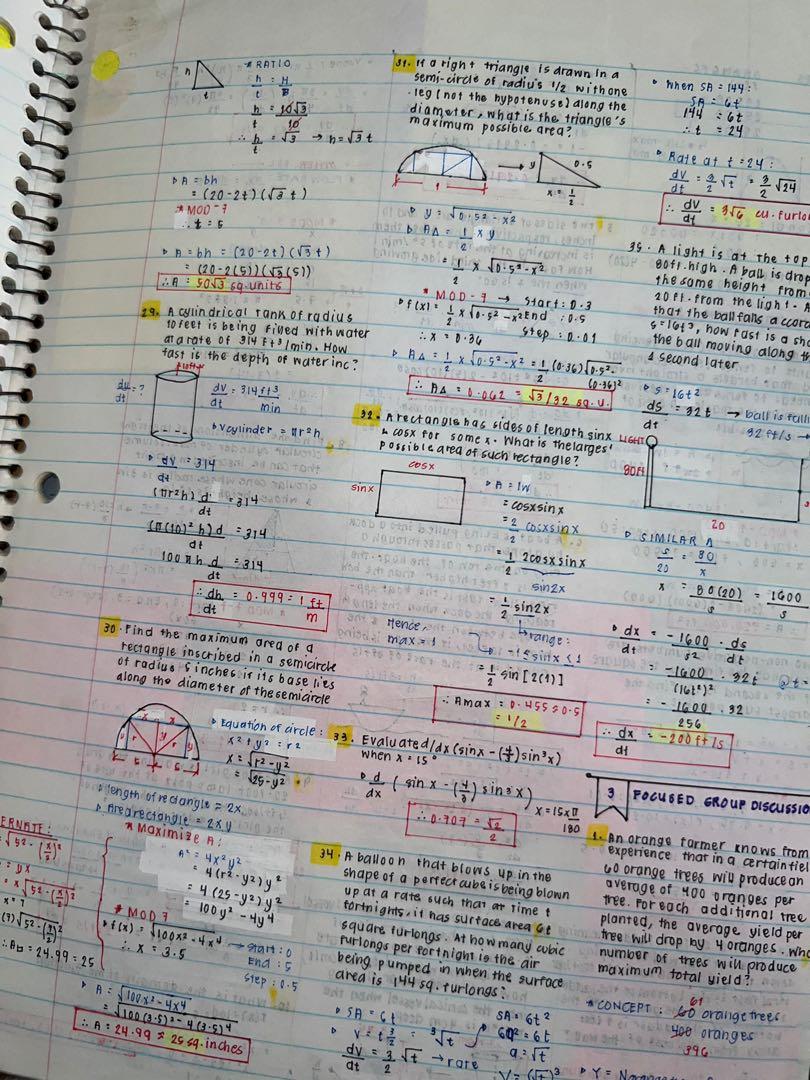 * RATIO
h
t
h = H
t B
h = 10√3
t 10
∴ h = √3 → h = √3 t
t
▹ A = bh
= (20-2t)(√3 t)
* MOD-7
∴ t = 5
▹ A = bh = (20-2t)(√3 t)
= (20-2(5))(√3(5))
∴ A = 50√3 sq. units
29. A cylindrical tank of radius
10 feet is being filled with water
at a rate of 314 ft³/min. How
fast is the depth of water inc?
dv = 314 ft³
dt min
▹ Vcylinder = πr²h
▹ dv = 314
dt
(πr²h) d = 314
dt
(π(10)² h) d = 314
dt
100πh d = 314
dt
∴ dh = 0.999 = 1 ft
dt m
30. Find the maximum area of a
rectangle inscribed in a semicircle
of radius 5 inches is its base lies
along the diameter of the semicircle
▹ Equation of circle:
x² + y² = r²
x = √r² - y²
= √25 - y²
▹ length of rectangle = 2x
▹ Area rectangle = 2xy
* Maximize A:
A² = 4x²y²
= 4(r² - y²) y²
= 4(25 - y²) y²
= 100y² - 4y⁴
* MOD 7
▹ f(x) = √100x² - 4x⁴ → start: 0
∴ x = 3.5 End: 5
Step: 0.5
▹ A = √100x² - 4x⁴
= √100(3.5)² - 4(3.5)⁴
∴ A = 24.99 ≈ 25 sq. inches
ERNATE:
= 24.99 = 25
31. If a right triangle is drawn in a
semi-circle of radius 1/2 with one
leg (not the hypotenuse) along the
diameter, what is the triangle's
maximum possible area?
1
y 0.5
x = 1/2
▹ y = √0.5² - x²
▹ A△ = 1/2 xy
= 1/2 x √0.5² - x²
* MOD-7 → Start: 0.3
▹ f(x) = 1/2 x √0.5² - x² End: 0.5
∴ x = 0.36 Step: 0.01
▹ A△ = 1/2 x √0.5² - x² = 1/2 (0.36) √0.5² - (0.36)²
∴ A△ = 0.062 = √3/32 sq. u.
32. A rectangle has sides of length sinx
& cosx for some x. What is the larges
possible area of such rectangle?
cosx
sinx
▹ A = lw
= cosxsinx
= 2/2 cosxsinx
= 1/2 2cosxsinx
sin2x
= 1/2 sin2x
Hence,
max = 1
range:
-1 ≤ sinx ≤ 1
= 1/2 sin[2(1)]
∴ Amax = 0.455 ≈ 0.5
= 1/2
33. Evaluate d/dx (sinx - (4/3) sin³x)
when x = 15°
▹ d/dx (sin x - (4/3) sin³x)
x = 15 x π/180
∴ 0.707 = √2/2
34. A balloon that blows up in the
shape of a perfect cube is being blown
up at a rate such that at time t
fortnights, it has surface area 6t
square furlongs. At how many cubic
furlongs per fortnight is the air
being pumped in when the surface
area is 144 sq. furlongs?
▹ SA = 6t SA = 6t²
dv = 3/2 √t → rate
dt
a = √t
▹ When SA = 144:
SA = 6t
144 = 6t
∴ t = 24
▹ Rate at t = 24:
dV = 3/2 √t = 3/2 √24
dt
∴ dV = 3√6 cu. furlon
dt
35. A light is at the top
80ft. high. A ball is drop
the same height from
20 ft. from the light. A
that the ball falls accord
s = 16t², how fast is a sha
the ball moving along th
1 second later
▹ s = 16t²
ds = 32t → ball is falli
dt 32 ft/s
LIGHT
80ft
20
▹ SIMILAR △
s = 80
20 x
x = 80(20) = 1600
s s
▹ dx = -1600 . ds
dt s² dt
= -1600 . 32t @ t =
(16t²)²
= -1600 . 32
256
∴ dx = -200 ft/s
dt
3 FOCUSED GROUP DISCUSSIO
1. An orange farmer knows from
experience that in a certain fiel
60 orange trees will produce an
average of 400 oranges per
tree. For each additional tree
planted, the average yield per
tree will drop by 4 oranges. Wha
number of trees will produce
maximum total yield?
61
* CONCEPT: 60 orange trees
400 oranges
396